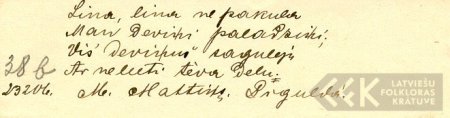 Lina, lina ne pakula
Man deviņi paladziņi,
Viš deviņus sagulēju
Ar neluti tēva delu.
38 b
23206. M. Mattiss, Pigulda.
LATVIEŠU
FOLKLORAS
KRATUVE